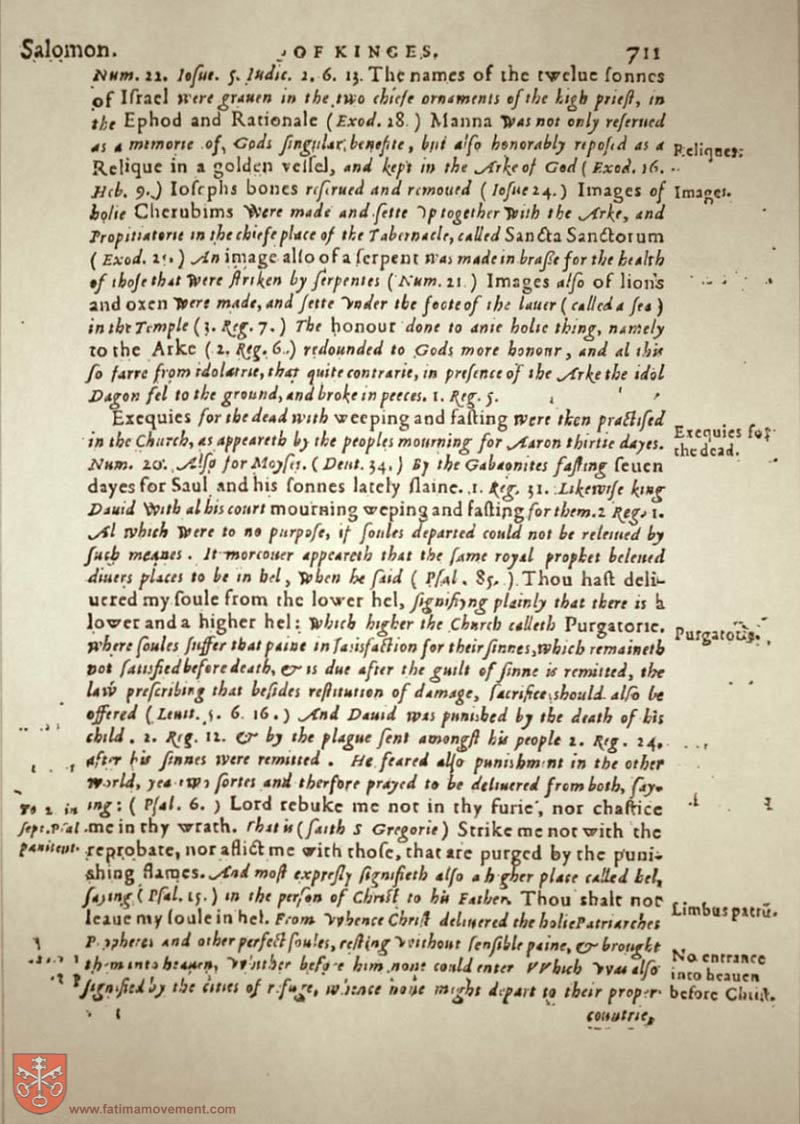 Salomon. OF KINGES. 711
Num. 22. Iosue. 5. Iudic. 2. 6. 13. The names of the twelue sonnes
of Israel were grauen in the two chiefe ornaments of the high priest, in
the Ephod and Rationale (Exod. 28.) Manna was not only reserued
as a memorie of Gods singular benefite, but also honorably reposed as a
Reliques.
Relique in a golden vessel, and kept in the Arke of God (Exod. 16.
Heb. 9.) Iosephs bones reserued and remoued (Iosue 24.) Images of
Images.
holie Cherubims were made and sette vp together with the Arke, and
Propitiatorie in the chiefe place of the Tabernacle, called Sancta Sanctorum
(Exod. 25.) An image also of a serpent was made in brasse for the health
of those that were striken by serpentes (Num. 21) Images also of lions
and oxen were made, and sette vnder the foote of the lauer (called a sea)
in the Temple (3. Reg. 7.) The honour done to anie holie thing, namely
to the Arke (2. Reg. 6.) redounded to Gods more honour, and al this
so farre from idolatrie, that quite contrarie, in presence of the Arke the idol
Dagon fel to the ground, and broke in peeces. 1. Reg. 5.
Exequies for the dead with weeping and fasting were then practised
Exequies for
the dead.
in the Church, as appeareth by the peoples mourning for Aaron thirtie dayes.
Num. 20. Also for Moyses. (Deut. 34.) By the Gabaonites fasting seuen
dayes for Saul and his sonnes lately slaine. 1. Reg. 31. Likewise king
Dauid with al his court mourning weping and fasting for them. 2 Reg. 1.
Al which were to no purpose, if soules departed could not be releiued by
such meanes. It morouer appeareth that the same royal prophet beleued
diuers places to be in hel, when he said (Psal. 85.) Thou hast deli-
uered my soule from the lower hel, signifiyng plainly that there is a
lower and a higher hel: which higher the Church calleth Purgatorie.
Purgatorie.
where soules suffer that paine in satisfaction for their sinnes, which remaineth
not satisfied before death, & is due after the guilt of sinne is remitted, the
law prescribing that besides restitution of damage, sacrifice should also be
offered (Leuit. 5. 6. 16.) And Dauid was punished by the death of his
child. 2. Reg. 12. & by the plague sent amongst his people 2. Reg. 24.
after his sinnes were remitted. He feared also punishment in the other
world, yea two sortes and therfore prayed to be deliuered from both, say-
ing: (Psal. 6.) Lord rebuke me not in thy furie, nor chastice
To 2 in
sept. Psal.
pænitent.
me in thy wrath. That is (saith S Gregorie) Strike me not with the
reprobate, nor aflict me with those, that are purged by the puni-
shing flames. And most expresly signifieth also a higher place called hel,
saying (Psal. 15.) in the person of Christ to his Father. Thou shalt not
leaue my soule in hel. From vvhence Christ deliuered the holie Patriarches
Limbus patrū.
Prophetes and other perfect soules, resting vvithout sensible paine, & brought
them into heauen, vvhither before him none could enter VVhich vvas also
No entrance
into heauen
before Christ.
signified by the cities of refuge, whence none might depart to their proper
countrie,
www.fatimamovement.com